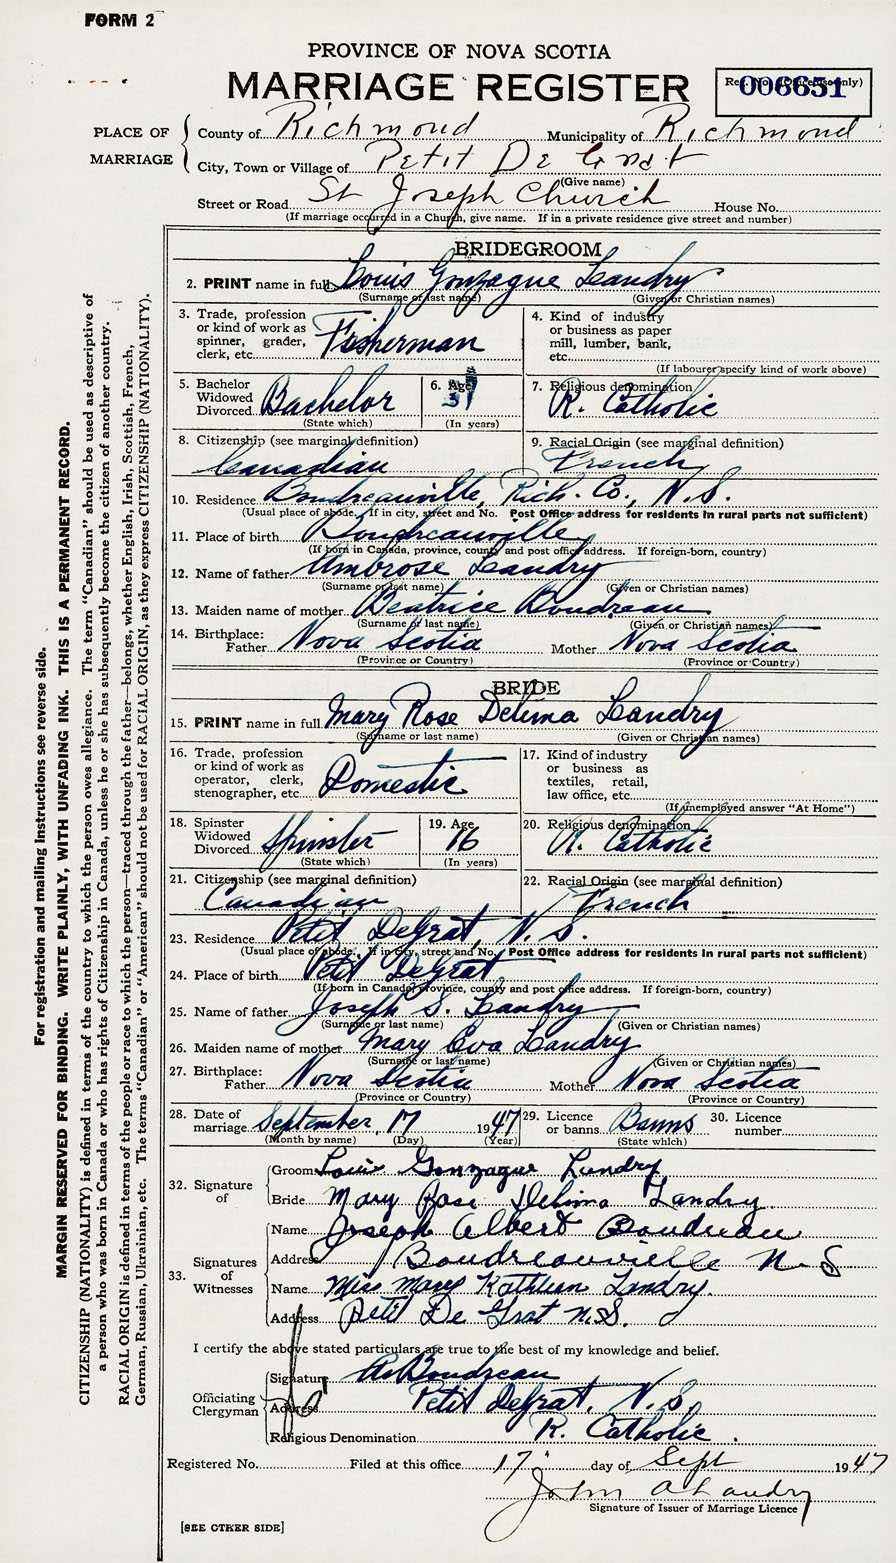 FORM 2
PROVINCE OF NOVA SCOTIA
MARRIAGE REGISTER
Reg. No. (Office use only)
006651
PLACE OF MARRIAGE
County of Richmond Municipality of Richmond
City, Town or Village of Petit De Grat
(Give name)
Street or Road St Joseph Church House No.
(If marriage occurred in a Church, give name. If in a private residence give street and number)
BRIDEGROOM
2. PRINT name in full Louis Gonzague Landry
(Surname or last name) (Given or Christian names)
3. Trade, profession or kind of work as spinner, grader, clerk, etc. Fisherman
4. Kind of industry or business as paper mill, lumber, bank, etc.
(If labourer specify kind of work above)
5. Bachelor Widowed Divorced Bachelor
(State which)
6. Age 31
(In years)
7. Religious denomination R. Catholic
8. Citizenship (see marginal definition) Canadian
9. Racial Origin (see marginal definition) French
10. Residence Boudreauville, Rich. Co., N.S.
(Usual place of abode. If in city, street and No. Post Office address for residents in rural parts not sufficient)
11. Place of birth Boudreauville
(If born in Canada, province, county and post office address. If foreign-born, country)
12. Name of father Ambrose Landry
(Surname or last name) (Given or Christian names)
13. Maiden name of mother Beatrice Boudreau
(Surname or last name) (Given or Christian names)
14. Birthplace: Father Nova Scotia Mother Nova Scotia
(Province or Country) (Province or Country)
BRIDE
15. PRINT name in full Mary Rose Delima Landry
(Surname or last name) (Given or Christian names)
16. Trade, profession or kind of work as operator, clerk, stenographer, etc. Domestic
17. Kind of industry or business as textiles, retail, law office, etc.
(If unemployed answer "At Home")
18. Spinster Widowed Divorced Spinster
(State which)
19. Age 16
(In years)
20. Religious denomination R. Catholic
21. Citizenship (see marginal definition) Canadian
22. Racial Origin (see marginal definition) French
23. Residence Petit DeGrat, N.S.
(Usual place of abode. If in city, street and No. Post Office address for residents in rural parts not sufficient)
24. Place of birth Petit DeGrat
(If born in Canada, province, county and post office address. If foreign-born, country)
25. Name of father Joseph S. Landry
(Surname or last name) (Given or Christian names)
26. Maiden name of mother Mary Eva Landry
(Surname or last name) (Given or Christian names)
27. Birthplace: Father Nova Scotia Mother Nova Scotia
(Province or Country) (Province or Country)
28. Date of marriage September 17 1947
(Month by name) (Day) (Year)
29. Licence or banns Banns
(State which)
30. Licence number
32. Signature of
Groom Louis Gonzague Landry
Bride Mary Rose Delima Landry
33. Signatures of Witnesses
Name Joseph Albert Boudreau
Address Boudreauville N.S
Name Miss Mary Kathleen Landry.
Address Petit De Grat N.S.
I certify the above stated particulars are true to the best of my knowledge and belief.
Officiating Clergyman
Signature A. Boudreau
Address Petit DeGrat, N.S.
Religious Denomination R. Catholic.
Registered No. Filed at this office 17 day of Sept 1947
John A Landry
Signature of Issuer of Marriage Licence
[SEE OTHER SIDE]
For registration and mailing instructions see reverse side.
MARGIN RESERVED FOR BINDING. WRITE PLAINLY, WITH UNFADING INK. THIS IS A PERMANENT RECORD.
CITIZENSHIP (NATIONALITY) is defined in terms of the country to which the person owes allegiance. The term "Canadian" should be used as descriptive of
a person who was born in Canada or who has rights of Citizenship in Canada, unless he or she has subsequently become the citizen of another country.
RACIAL ORIGIN is defined in terms of the people or race to which the person—traced through the father—belongs, whether English, Irish, Scottish, French,
German, Russian, Ukrainian, etc. The terms "Canadian" or "American" should not be used for RACIAL ORIGIN, as they express CITIZENSHIP (NATIONALITY).